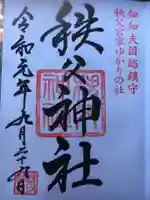 知知夫国総鎮守
秩父宮家ゆかりの社
秩父神社
令和元年九月二十九日